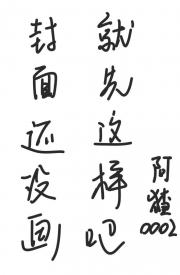 封面还没画
就先这样吧
阿猹
0002